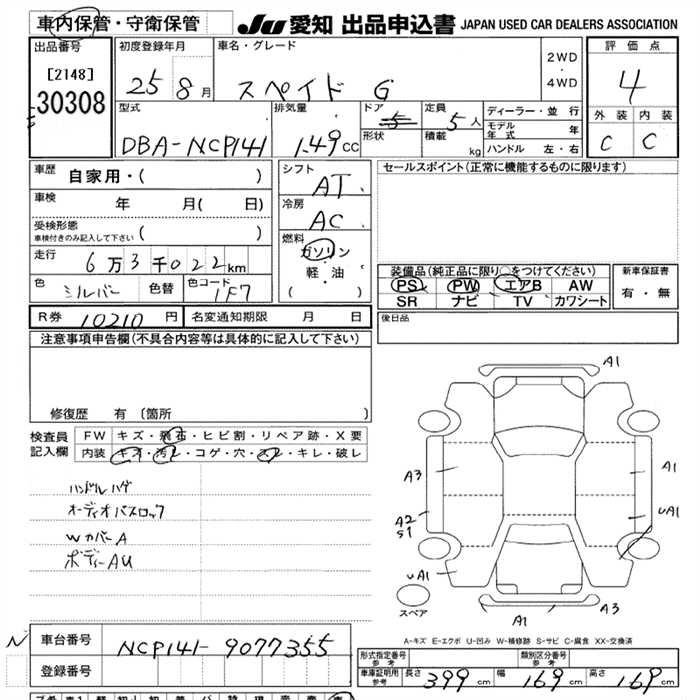 車内保管・守衛保管
JU 愛知 出品申込書 JAPAN USED CAR DEALERS ASSOCIATION
出品番号 初度登録年月 車名・グレード 評価点
[2148] 2WD
30308 25 8月 スペイド G ・ 4
4WD
型式 排気量 ドア 5 定員 5人 ディーラー・並行 外装 内装
DBA-NCP141 1.49cc 形状 積載 kg モデル年式 年 C C
ハンドル 左・右
車歴 自家用・( ) シフト AT セールスポイント(正常に機能するものに限ります)
車検 年 月( 日) 冷房 AC
受検形態
車検付きのみ記入して下さい ( )
走行 6万3千022km 燃料 ガソリン 軽・油 ( )
色 シルバー 色替 色コード 1F7
装備品(純正品に限り○をつけてください) 新車保証書
PS PW エアB AW 有・無
SR ナビ TV カワシート
R券 10210円 名変通知期限 月 日 後日品
注意事項申告欄(不具合内容等は具体的に記入して下さい)
修復歴 有(箇所 )
検査員記入欄 FW キズ・飛石・ヒビ割・リペア跡・X要
内装 キズ・汚レ・コゲ・穴・スレ・キレ・破レ
ハンドルハゲ
オーディオパスロック
WカバーA
ボディーAU
A1
A3 A1
A2 UA1
S1
UA1
スペア A1 A3
A-キズ E-エクボ U-凹み W-補修跡 S-サビ C-腐食 XX-交換済
N 車台番号 NCP141-9077355
登録番号
形式指定番号 参考 類別区分番号 参考
車庫証明用 参考 長さ 399cm 幅 169cm 高さ 169cm